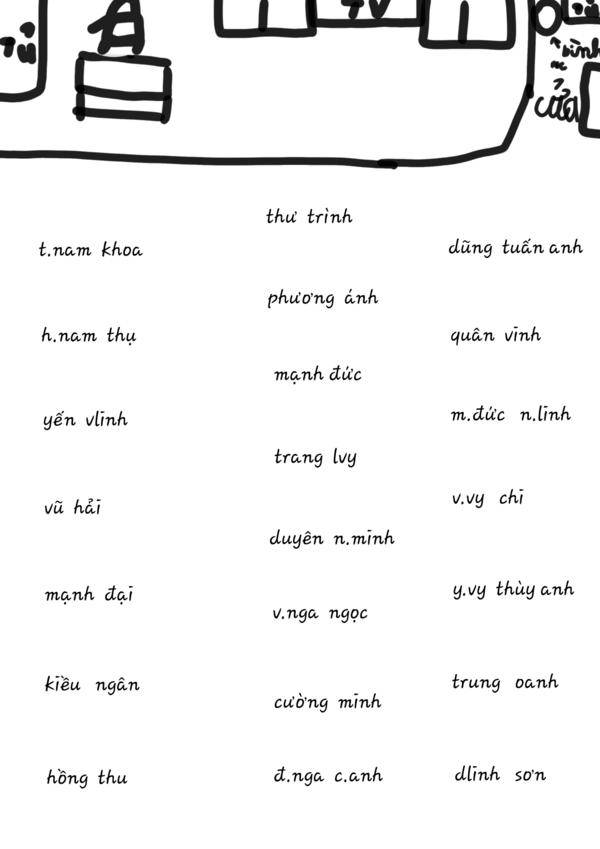 Tủ
TV
Tủ
bình
nc
cửa
thư trình
t.nam khoa
dũng tuấn anh
phương ánh
h.nam thụ
quân vinh
mạnh đức
yến vlinh
m.đức n.linh
trang lvy
vũ hải
v.vy chi
duyên n.minh
mạnh đại
y.vy thùy anh
v.nga ngọc
kiều ngân
trung oanh
cường minh
hồng thu
đ.nga c.anh
dlinh sơn